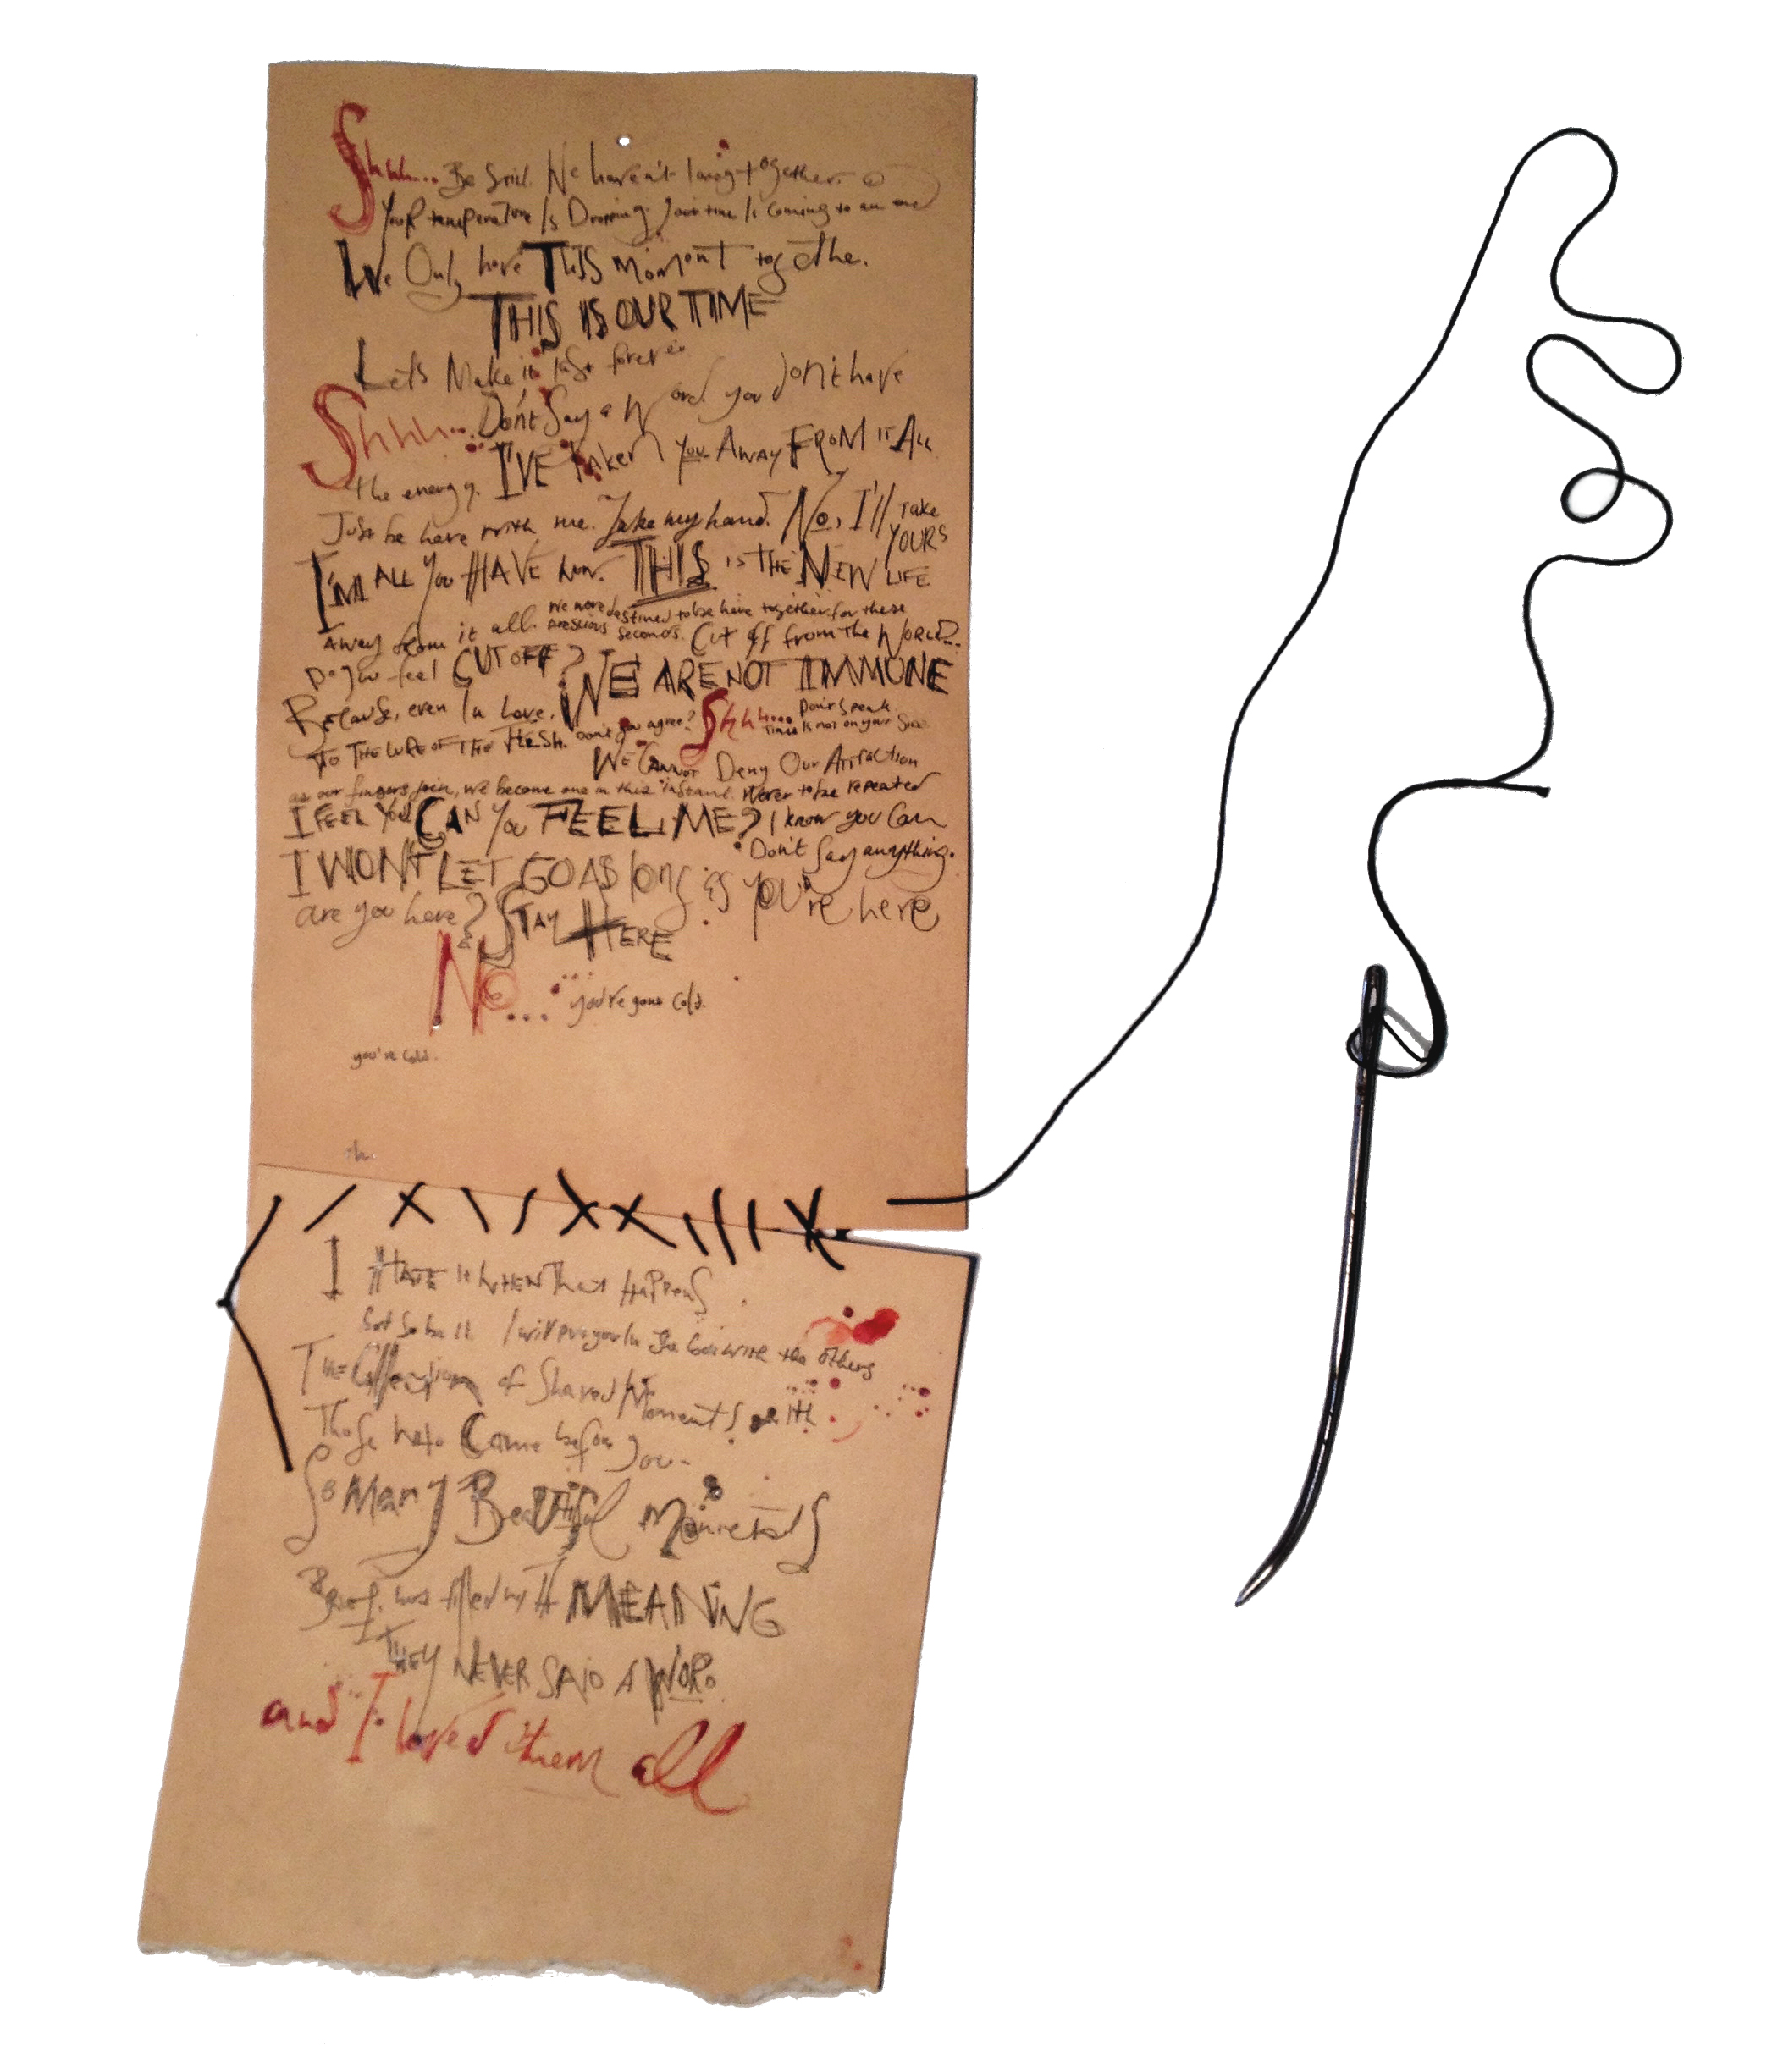 Shhh... Be Still. We haven't long together.
Your temperature Is Dropping. Your time Is coming to an end
We Only have THIS MoMenT together.
THIS IS OUR TIME
Let's Make it last forever
Shhh... Don't Say a Word. you don't have
the energy. I'VE taken you AWAY FROM IT ALL
Just be here with me. Take my hand. No, I'll TAKE YOURS
I'M ALL You HAVE now. THIS IS THE NEW LIFE
AWAY from it all. We were destined to be here together. for these precious seconds. Cut off from the WORLD...
Do you feel CUT OFF? WE ARE NOT IMMUNE
Because, even In Love,
TO THE LURE OF THE FLESH. Don't you agree? Shhh.... Don't Speak. Time Is not on your Side
WE CANNOT Deny Our Attraction
as our fingers join, we become one in this instant. Never to be repeated
I FEEL YOU. CAN you FEEL ME? I know you Can
Don't Say anything.
I WON'T LET GO AS long as you're here
are you here? STAY HERE
No... you've gone cold.
you're cold.
I HATE It WHEN That HAPPENS
but So be It. I will put you In the box with the others
THE Collection of Shared Moments with
Those who Came before you.
So Many Beautiful Moments
Brief, but filled wITH MEANING
THEY NEVER SAID A WORD
and I loved them all